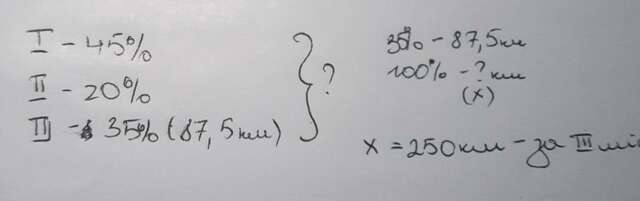 I - 45%
II - 20%
III - 35% (87,5 км)
} ?
35% - 87,5 км
100% - ? км
(x)
x = 250 км - за III